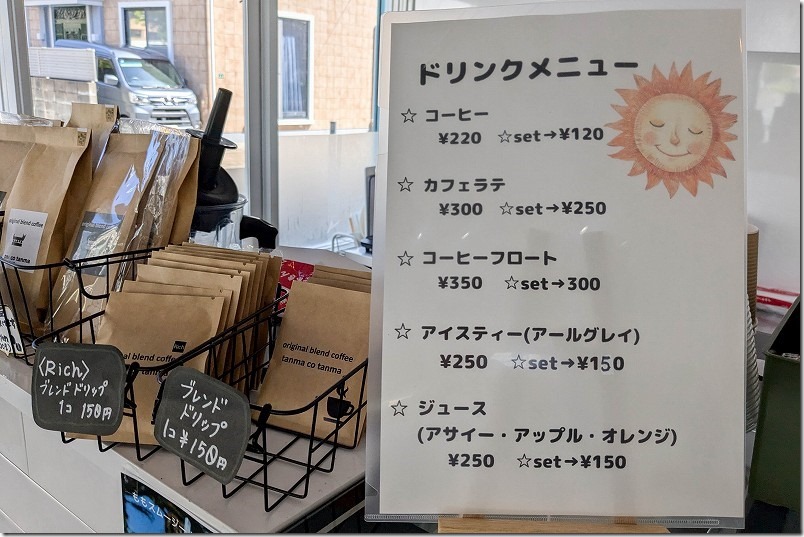 ドリンクメニュー
☆ コーヒー
¥220 ☆set→¥120
☆ カフェラテ
¥300 ☆set→¥250
☆ コーヒーフロート
¥350 ☆set→300
☆ アイスティー(アールグレイ)
¥250 ☆set→¥150
☆ ジュース
(アサイー・アップル・オレンジ)
¥250 ☆set→¥150
original blend coffee
co tanma
〈Rich〉
ブレンドドリップ
1コ 150円
Rich
al blend coffee
ブレンド
ドリップ
1コ ¥150円
original blend coffee
tanma co tanma
ももスムージ